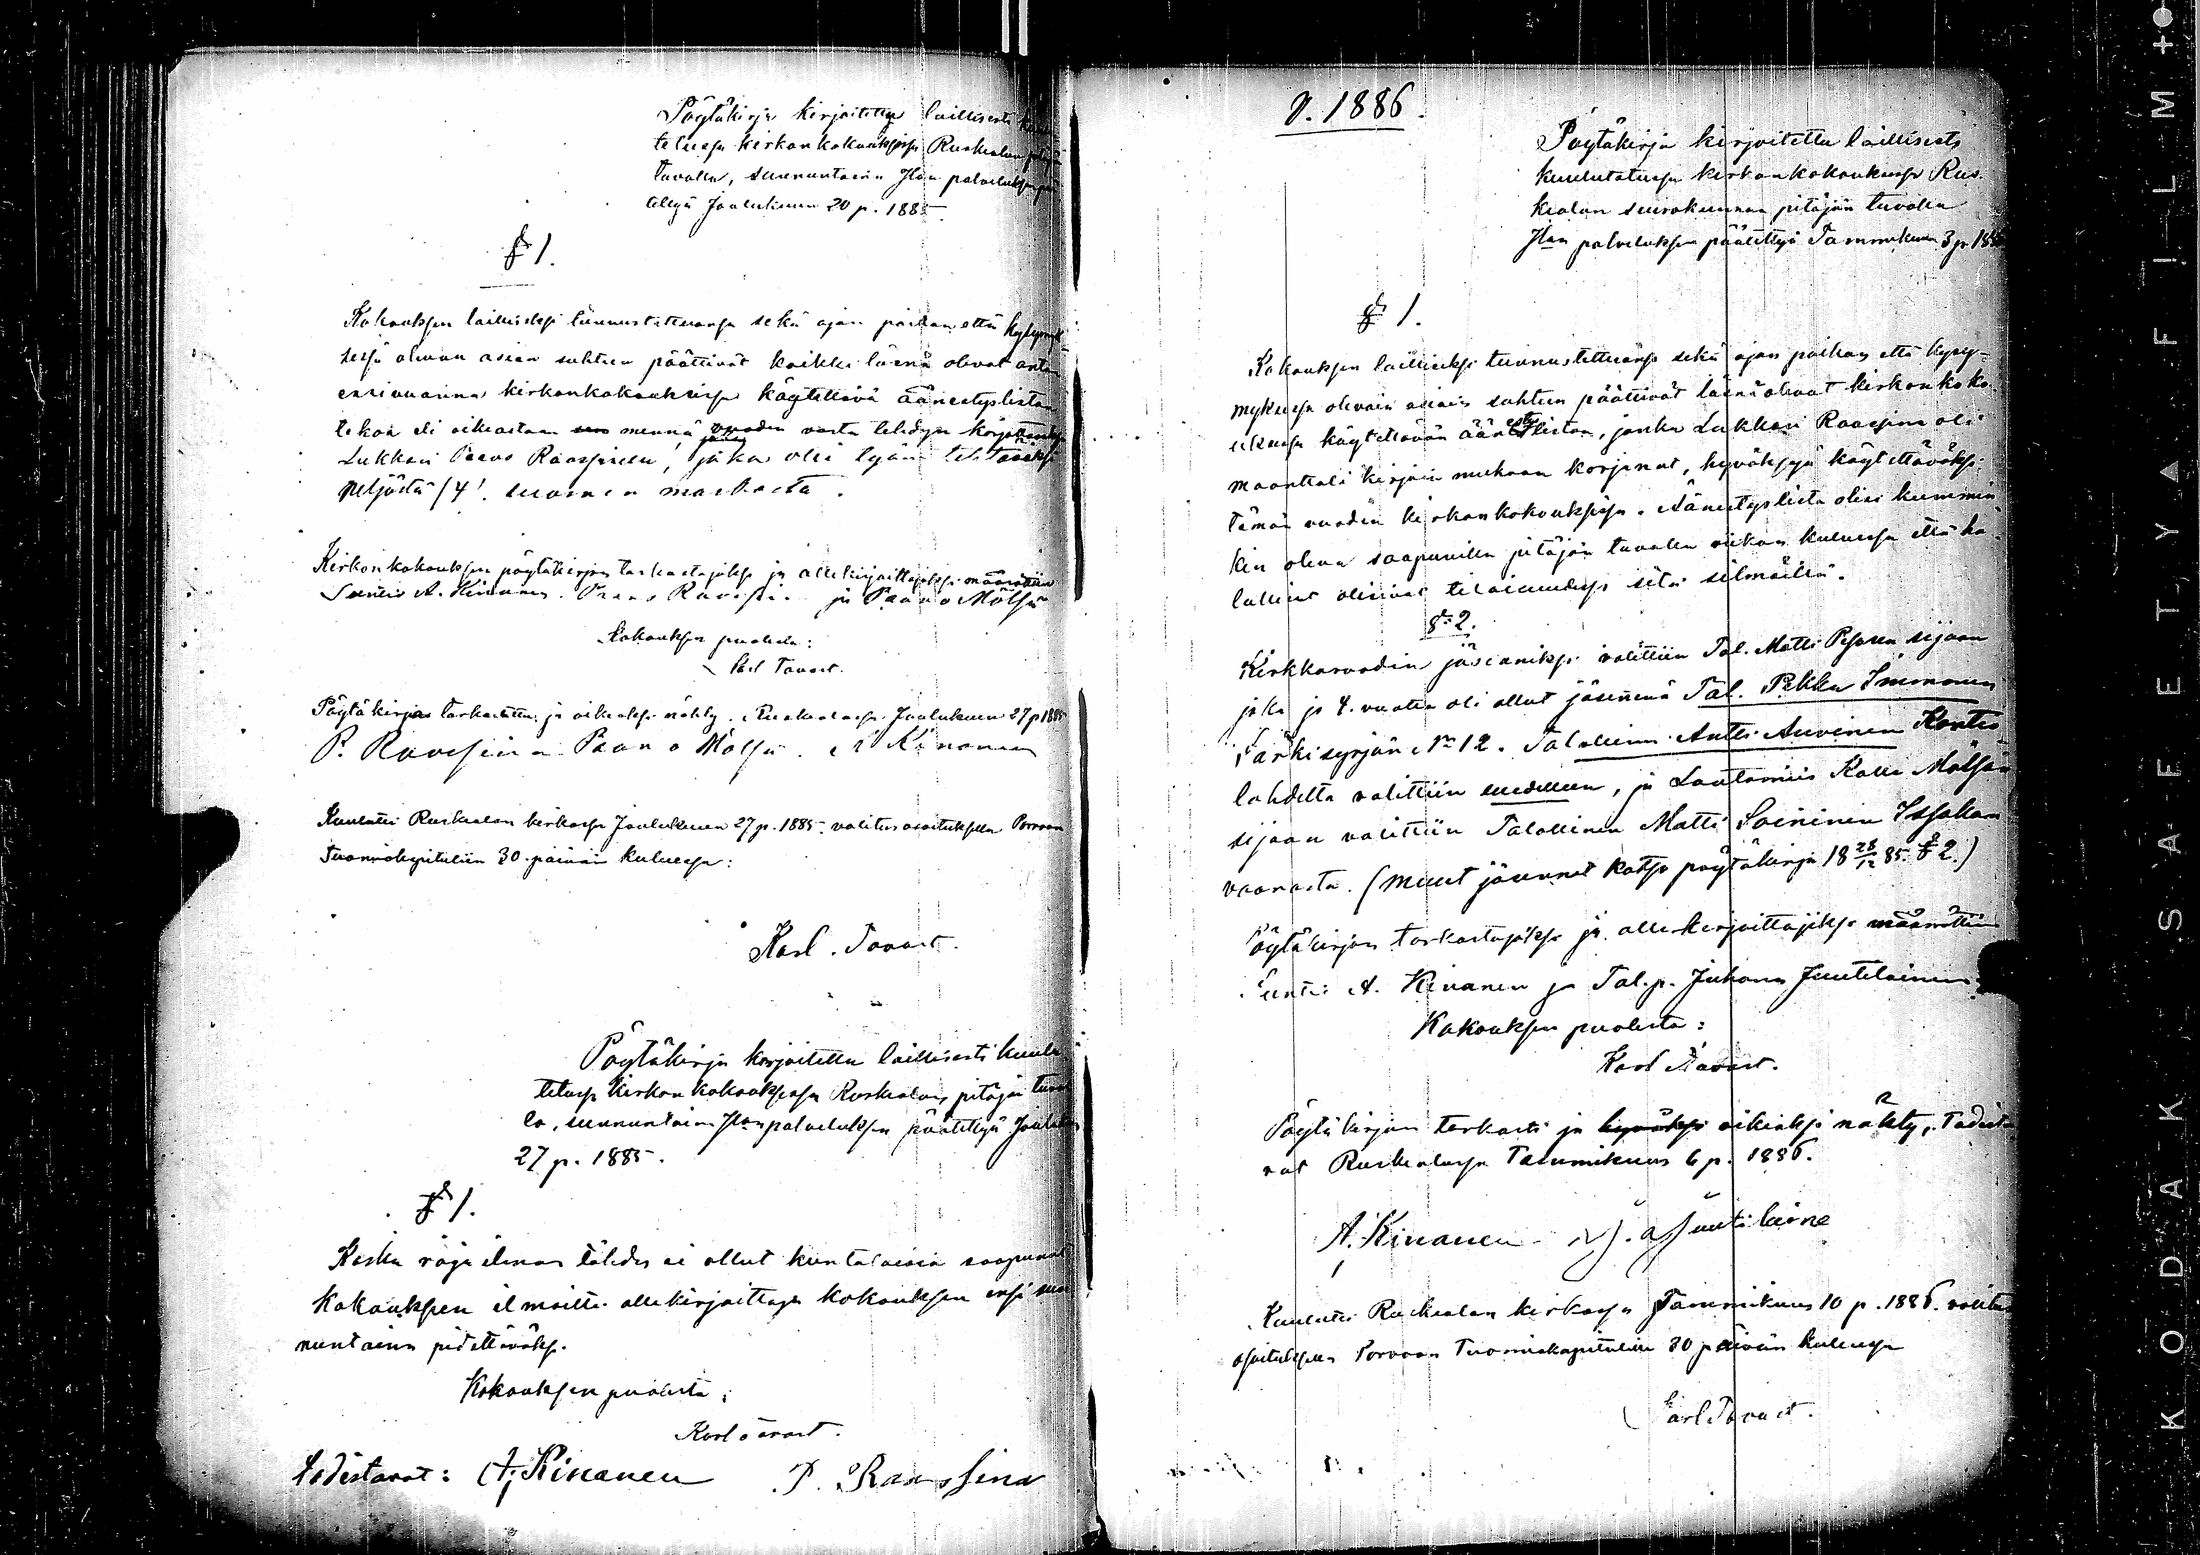 Pöytäkirja kirjoitettu laillisesti
telussa kirkonkokouksessa Ruskealan
tuvalla, sunnuntaina Jlan palveluksen
tettyä Joulukuun 20 p. 1885.
§ 1.
Kokouksen lailliseksi tunnustettuansa sekä ajan paikan että kysymyk-
sessä olevan asian suhteen päättivät kaikki läsnä olevat antaa
ensivuonna kirkonkokouksissa käytettävä äänestyslistan
tekoa eli oikeastaan mennä vuoden vasta tehdyn korjattavaksi
Lukkari Paavo Raassinen, joka olisi työn tehtävä
neljästä /4/. suomen markasta.
Kirkonkokouksen pöytäkirjan tarkastajaksi ja allekirjoittajaksi määrättiin
Suntio A. Kinanen. Paavo Raassina ja Paavo Mölsä
Kokouksen puolesta:
Karl Tavast.
Pöytäkirjan tarkastettu ja oikeaksi nähty. Ruskealassa Joulukuun 27 p 1885
P. Raassina Paavo Mölsä. A Kinanen
Kuulutti Ruskealan kirkossa Joulukuun 27 p. 1885. valitus osoituksella Porvoon
Tuomiokapituliin 30 päivän kuluessa:
Karl. Tavast.
Pöytäkirja kirjoitettu laillisesti kuulu-
tetussa Kirkon kokouksessa Ruskealan pitäjän tuval
la, sunnuntaina Jlan palveluksen päätettyä Joulukuun
27 p. 1885.
§ 1.
Koska räjy ilman tähden ei ollut kuntalaisia saapunut
kokoukseen ilmoitti allekirjoittaja kokouksen ensi sun
nuntaina pidettäväksi.
Kokouksen puolesta:
Karl Tavast.
todistavat: A, Kinanen P. Raassina
V. 1886.
Pöytäkirja kirjoitettu laillisesti
kuulutetussa kirkonkokouksessa Rus-
kealan seurakunnan pitäjän tuvalla
Jlan palveluksen päätettyä Tammikuun 3 p. 188
§ 1.
Kokouksen lailliseksi tunnustettuansa sekä ajan paikan että kysy-
myksessä olevain asiain suhteen päättivät läsnä olevat kirkonkoko-
uksessa käytettävän äänestyslistan, jonka Lukkari Raassina oli
maanttali kirjain mukaan korjannut, hyväksyä käytettäväksi
tämän vuoden kirkonkokouksissa. Äänestyslista olisi kummin
kin oleva saapuvilla pitäjän tuvalla viikon kuluessa että ha-
lulliset olisivat tilaisuudessa sitä silmäillä.
§ 2.
Kirkkoraadin jäseneniksi valittiin Tal. Matti Pesosen sijaan
joka jo 4. vuotta oli ollut jäsenenä Tal. Pekka Immonen
Särkisyrjän No 12. Talollinen Antti Auvinen Kontio
lahdelta valittiin uudelleen, ja Lautamies Kalle Mölsän
sijaan valittiin Talollinen Matti Soininen Issakan
vaarasta. (muut jäsennet katso pöytäkirja 18 28/12 85. § 2.)
Pöytäkirjan tarkastajaksi ja allekirjoittajaksi määrättiin
Suntio A. Kinanen ja Tal.p. Juhana Juutilainen.
Kokouksen puolesta:
Karl Tavast.
Pöytäkirjan tarkasti ja hyväksi oikeaksi nähty, todista
vat Ruskealassa Tammikuun 6 p. 1886.
A. Kinanen J. Juutilaine
Kuulutti Ruskealan kirkossa Tammikuun 10 p. 1886. valitus
osoituksella Porvoon Tuomiokapituliin 30 päivän kuluessa
Karl Tavast.
KODAK SAFETY A FILM